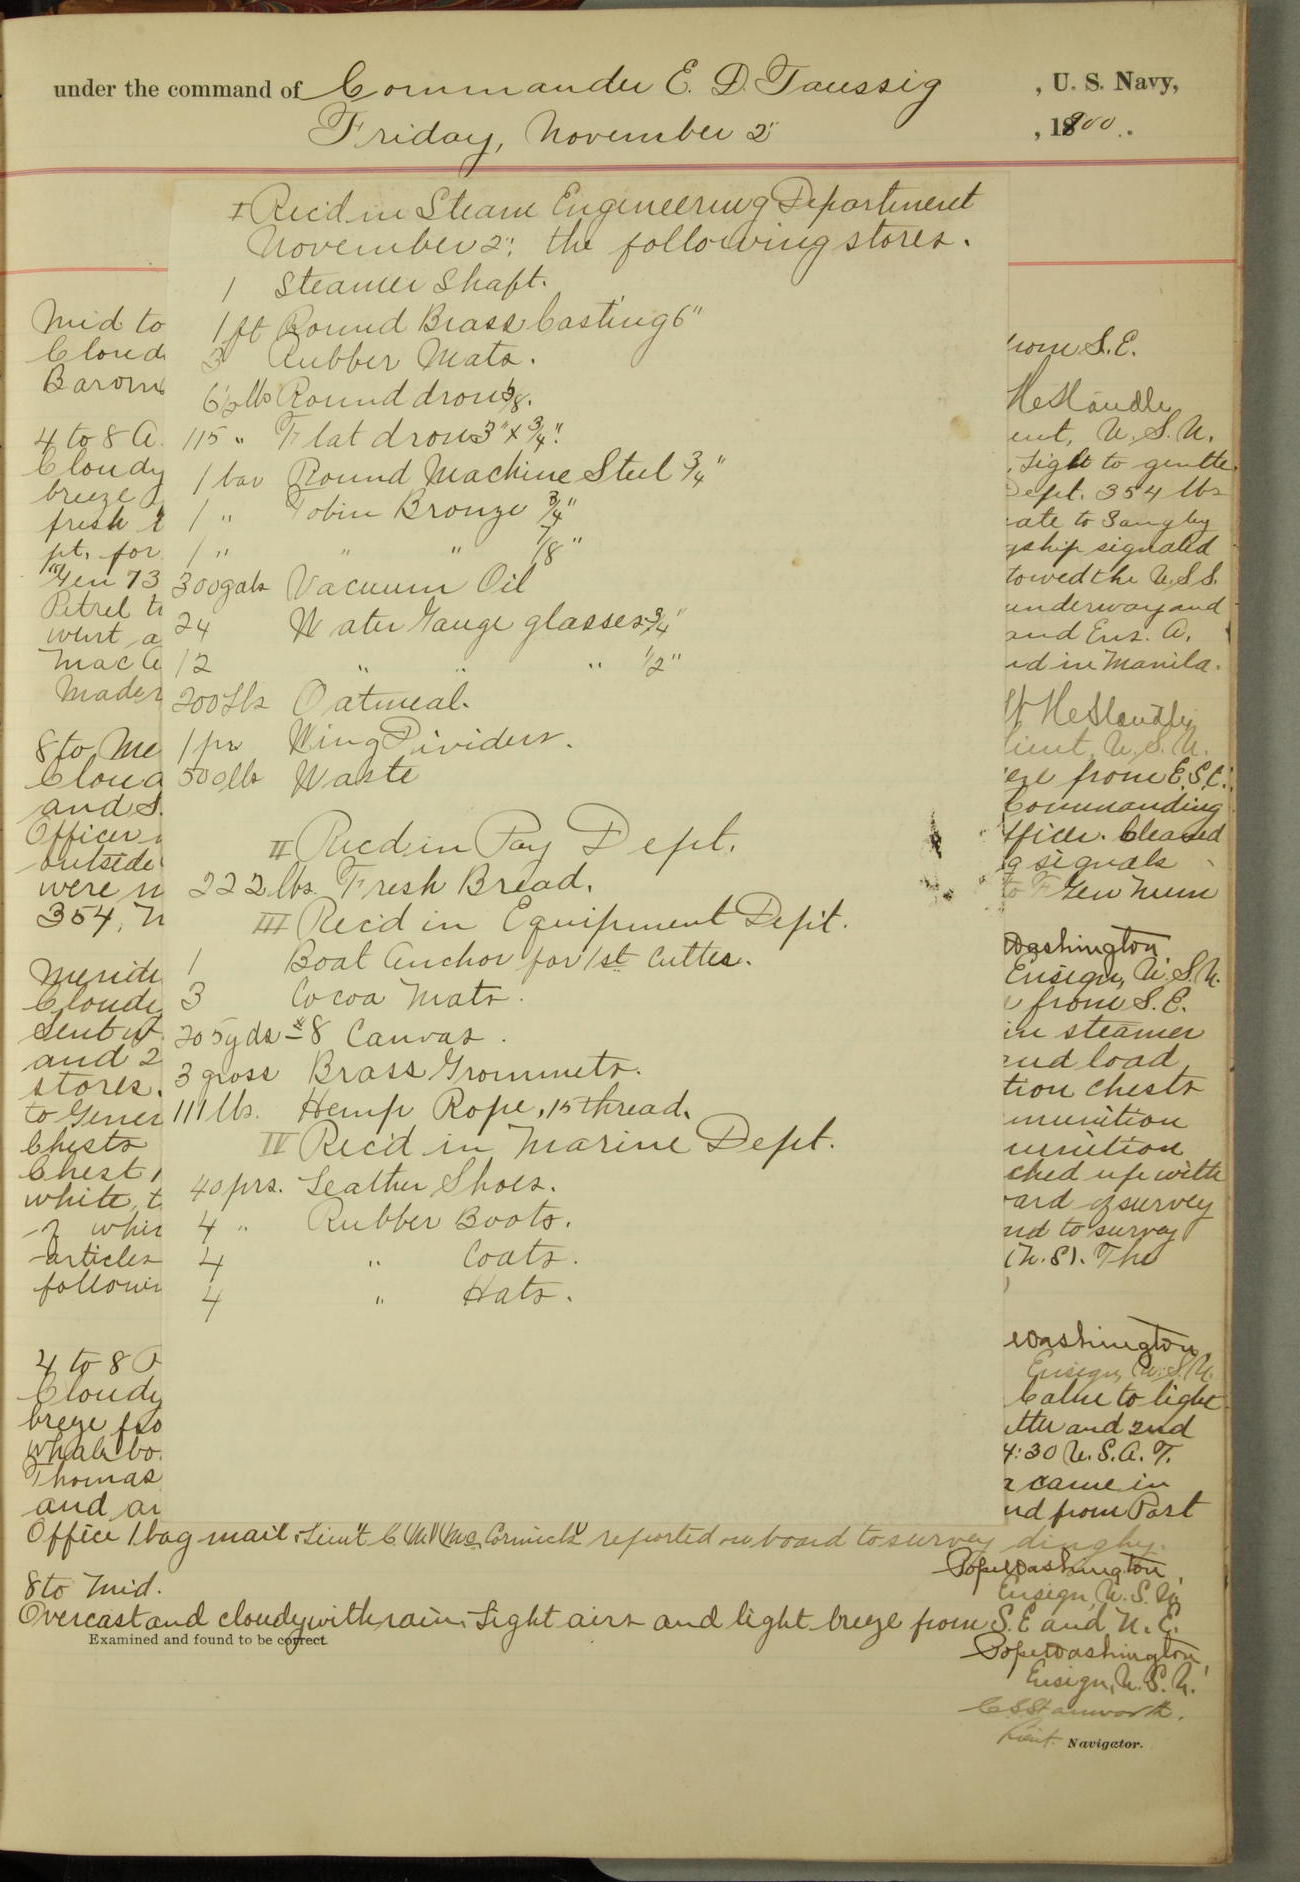 under the command of Commander E. D. Taussig , U. S. Navy,
Friday, November 2" , 1900.
I Rec'd in Steam Engineering Department
November 2", the following stores.
1 Steamer Shaft.
1 ft Round Brass Casting 6"
3 Rubber Mats.
6½ lbs Round Iron 5/8.
115 " Flat Iron 3" x 3/4".
1 bar Round Machine Steel 3/4"
1 " Tobin Bronze 3/4"
1 " " " 7/8"
300 gals Vacuum Oil
24 Water Gauge glasses 3/4"
12 " " " 1/2"
200 Lbs Oatmeal.
1 pr Wing Dividers.
500 lbs Waste
II Rec'd in Pay Dept.
222 lbs. Fresh Bread.
III Rec'd in Equipment Dept.
1 Boat Anchor for 1st Cutter.
3 Cocoa Mats.
205 yds #8 Canvas.
3 gross Brass Grommets.
111 lbs. Hemp Rope, 15 thread.
IV Rec'd in Marine Dept.
40 prs. Leather Shoes.
4 " Rubber Boots.
4 " Coats.
4 " Hats.
Mid to
Cloud
Barom
4 to 8 A.
Cloudy
breeze
fresh
pt. for
Gen 73
Petrel to
went a
Mac A
Mader
8 to Me
Cloud
and S.
Officer
outside
were n
354, N
Meridi
Cloudy
Sent
and 2
stores.
to Gener
Chests
Chest
white, t
whit
articles
followi
4 to 8 P
Cloudy
breeze fro
whale bo
Thomas
and an
from S.E.
ent, U.S.N.
, Light to gentle
Dept. 354 lbs
ate to Sangley
gship signaled
towed the U.S.S.
underway and
and Ens. A.
ed in Manila.
Lieut, U.S.N.
eze from E.S.E.
Commanding
fficer. Cleared
g signals
to Gen Num
Washington
Ensign, U.S.N.
from S.E.
in steamer
and load
tion chests
munition
munition
ched up with
ard of survey
nd to survey
(N.S). The
Washington
Ensign, U.S.N.
Calm to light
tter and 2nd
4:30 U.S.A.T.
came in
nd from Post
Office 1 bag mail. Lieut C M McCormick reported on board to survey dinghy.
Pope Washington,
Ensign, U.S.N.
8 to Mid.
Overcast and cloudy with rain, Light airs and light breeze from S.E and N.E.
Examined and found to be correct.
Pope Washington,
Ensign, U.S.N.
C S Stanworth.
Lieut. Navigator.